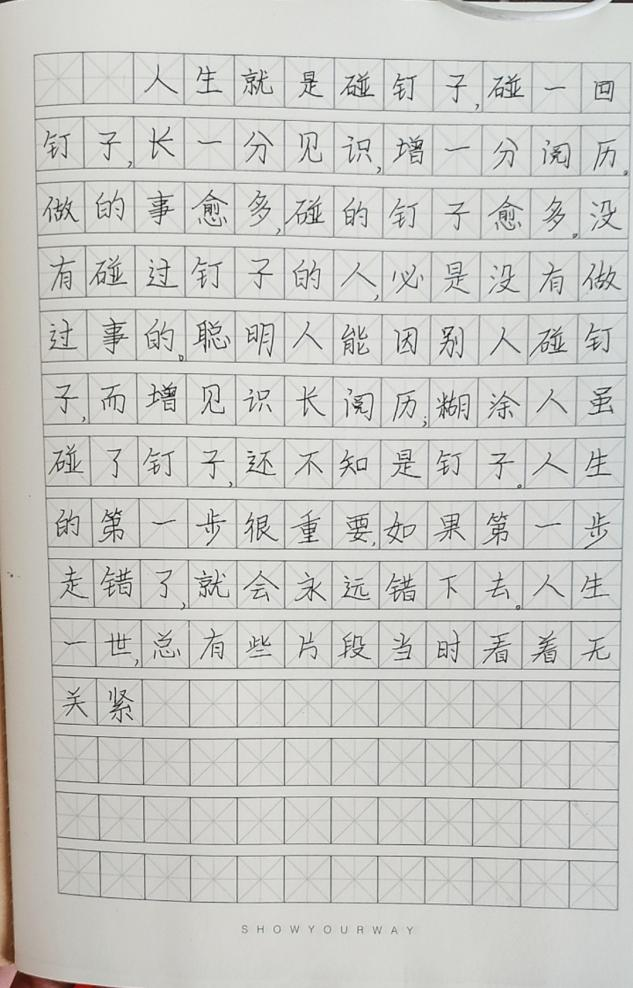 人生就是碰钉子,碰一回
钉子,长一分见识,增一分阅历。
做的事愈多,碰的钉子愈多。没
有碰过钉子的人,必是没有做
过事的。聪明人能因别人碰钉
子,而增见识长阅历;糊涂人虽
碰了钉子,还不知是钉子。人生
的第一步很重要,如果第一步
走错了,就会永远错下去。人生
一世,总有些片段当时看着无
关紧
SHOWYOURWAY